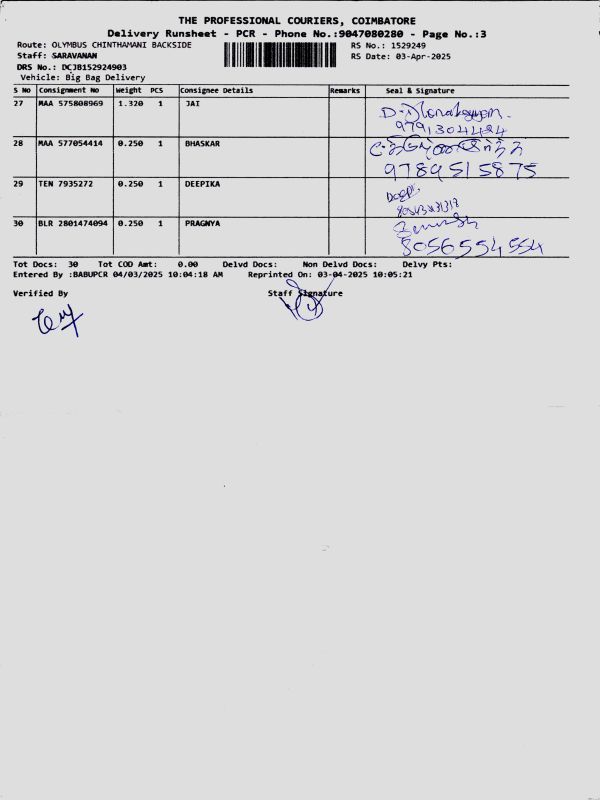 THE PROFESSIONAL COURIERS, COIMBATORE
Delivery Runsheet - PCR - Phone No.:9047080280 - Page No.:3
Route: OLYMPUS CHINTHAMANI BACKSIDE
RS No.: 1529249
Staff: SARAVANAN
RS Date: 03-Apr-2025
DRS No.: DCJB152924903
Vehicle: Big Bag Delivery
S No Consignment No Weight PCS Consignee Details Remarks Seal & Signature
27 MAA 575808969 1.320 1 JAI
9791304484
28 MAA 577054414 0.250 1 BHASKAR
9789515875
29 TEN 7935272 0.250 1 DEEPIKA
30 BLR 2801474094 0.250 1 PRAGNYA
8056554554
Tot Docs: 30 Tot COD Amt: 0.00 Delvd Docs: Non Delvd Docs: Delvy Pts:
Entered By :BABUPCR 04/03/2025 10:04:18 AM Reprinted On: 03-04-2025 10:05:21
Verified By Staff Signature